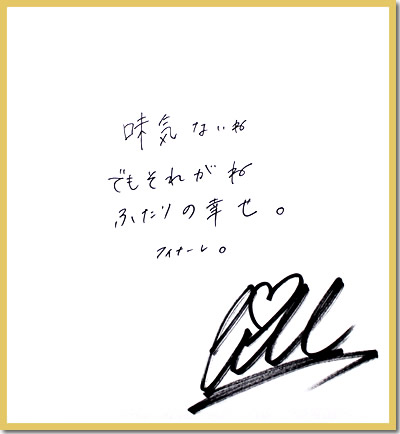 味気ないね
でもそれがね
ふたりの幸せ。
フィナーレ。